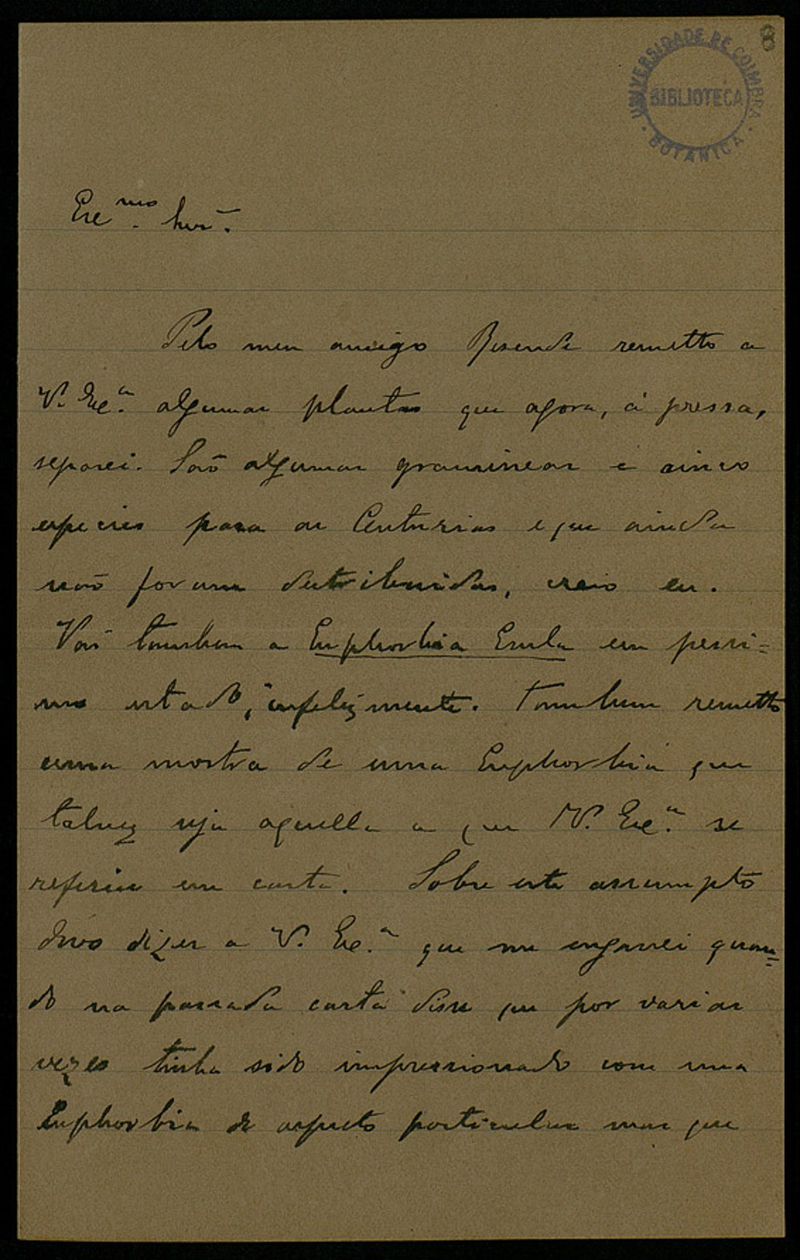 8
UNIVERSIDADE DE COIMBRA
BIBLIOTECA
BOTANICA
Exe.mo Snr.
Pelo meu amigo Rezende remetto a
V. Exe.a algumas plantas que agora, á pressa,
separei. São algumas gramineas e cinco
especies para as Centurias e que ainda
não foram destribuidas, creio eu.
Vae tambem a Euphorbia Esula em pessi=
mo estado, infelizmente. Tambem remetto
uma mostra de uma Euphorbia que
talvez seja aquella a que V. Exe.a se
referiu em carta. Sobre este assumpto
devo dizer a V. Exe.a que me enganei quan=
do na passada carta disse que por varias
vezes tinha sido impressionado com uma
Euphorbia de aspecto particular mas que